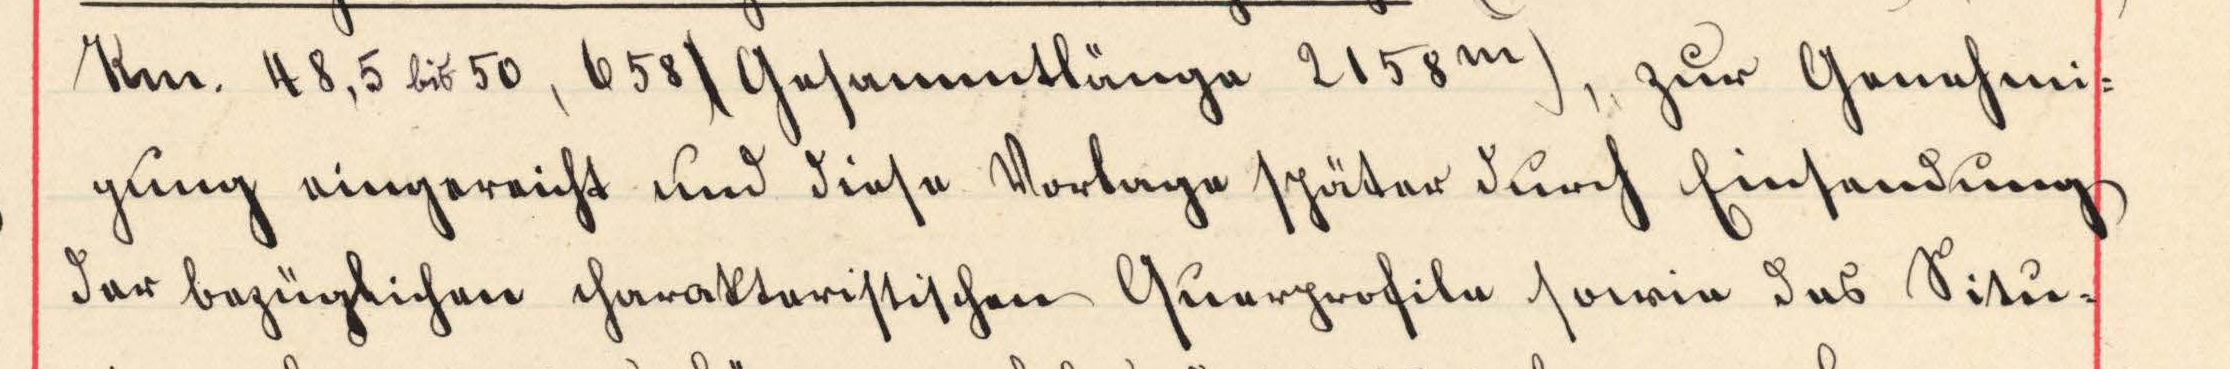 Km. 48,5 bis 50,658 (Gesammtlänge 2158 m), zur Genehmi-
gung eingereicht und diese Vorlage später durch Einsendung
der bezüglichen charakteristischen Querprofile sowie des Situ-